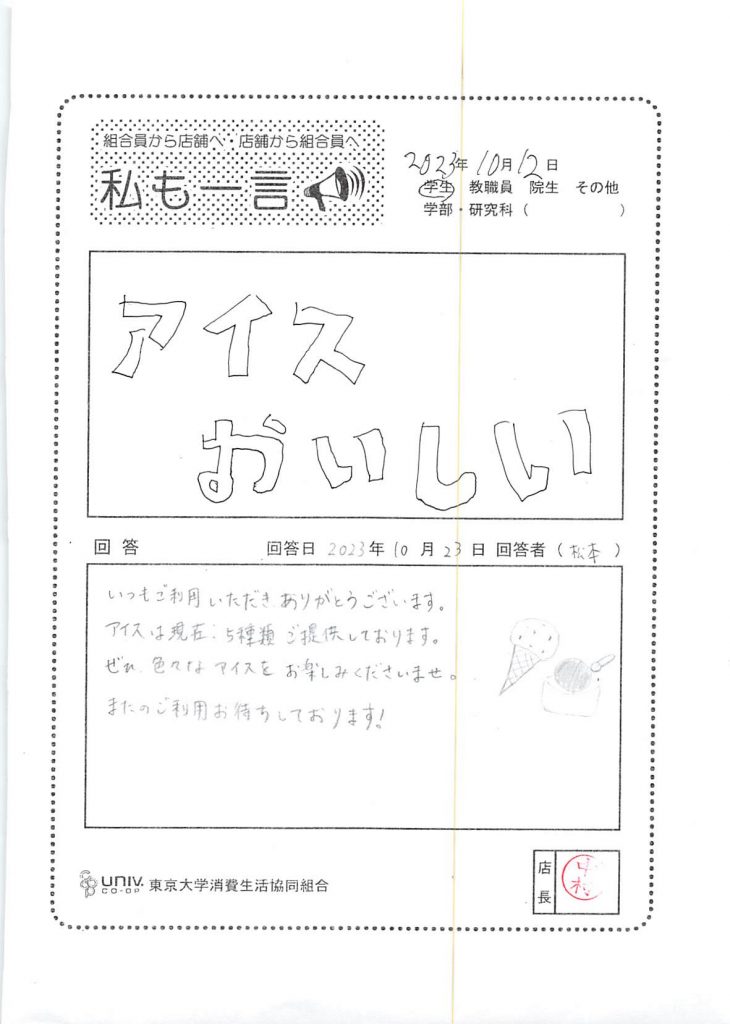 組合員から店舗へ・店舗から組合員へ
私も一言
2023年10月12日
学生 教職員 院生 その他
学部・研究科（ ）
アイス
おいしい
回答 回答日 2023年10月23日 回答者（松本）
いつもご利用いただきありがとうございます。
アイスは現在、5種類ご提供しております。
ぜひ、色々なアイスをお楽しみくださいませ。
またのご利用お待ちしております!
UNIV. CO-OP 東京大学消費生活協同組合
店長
中村